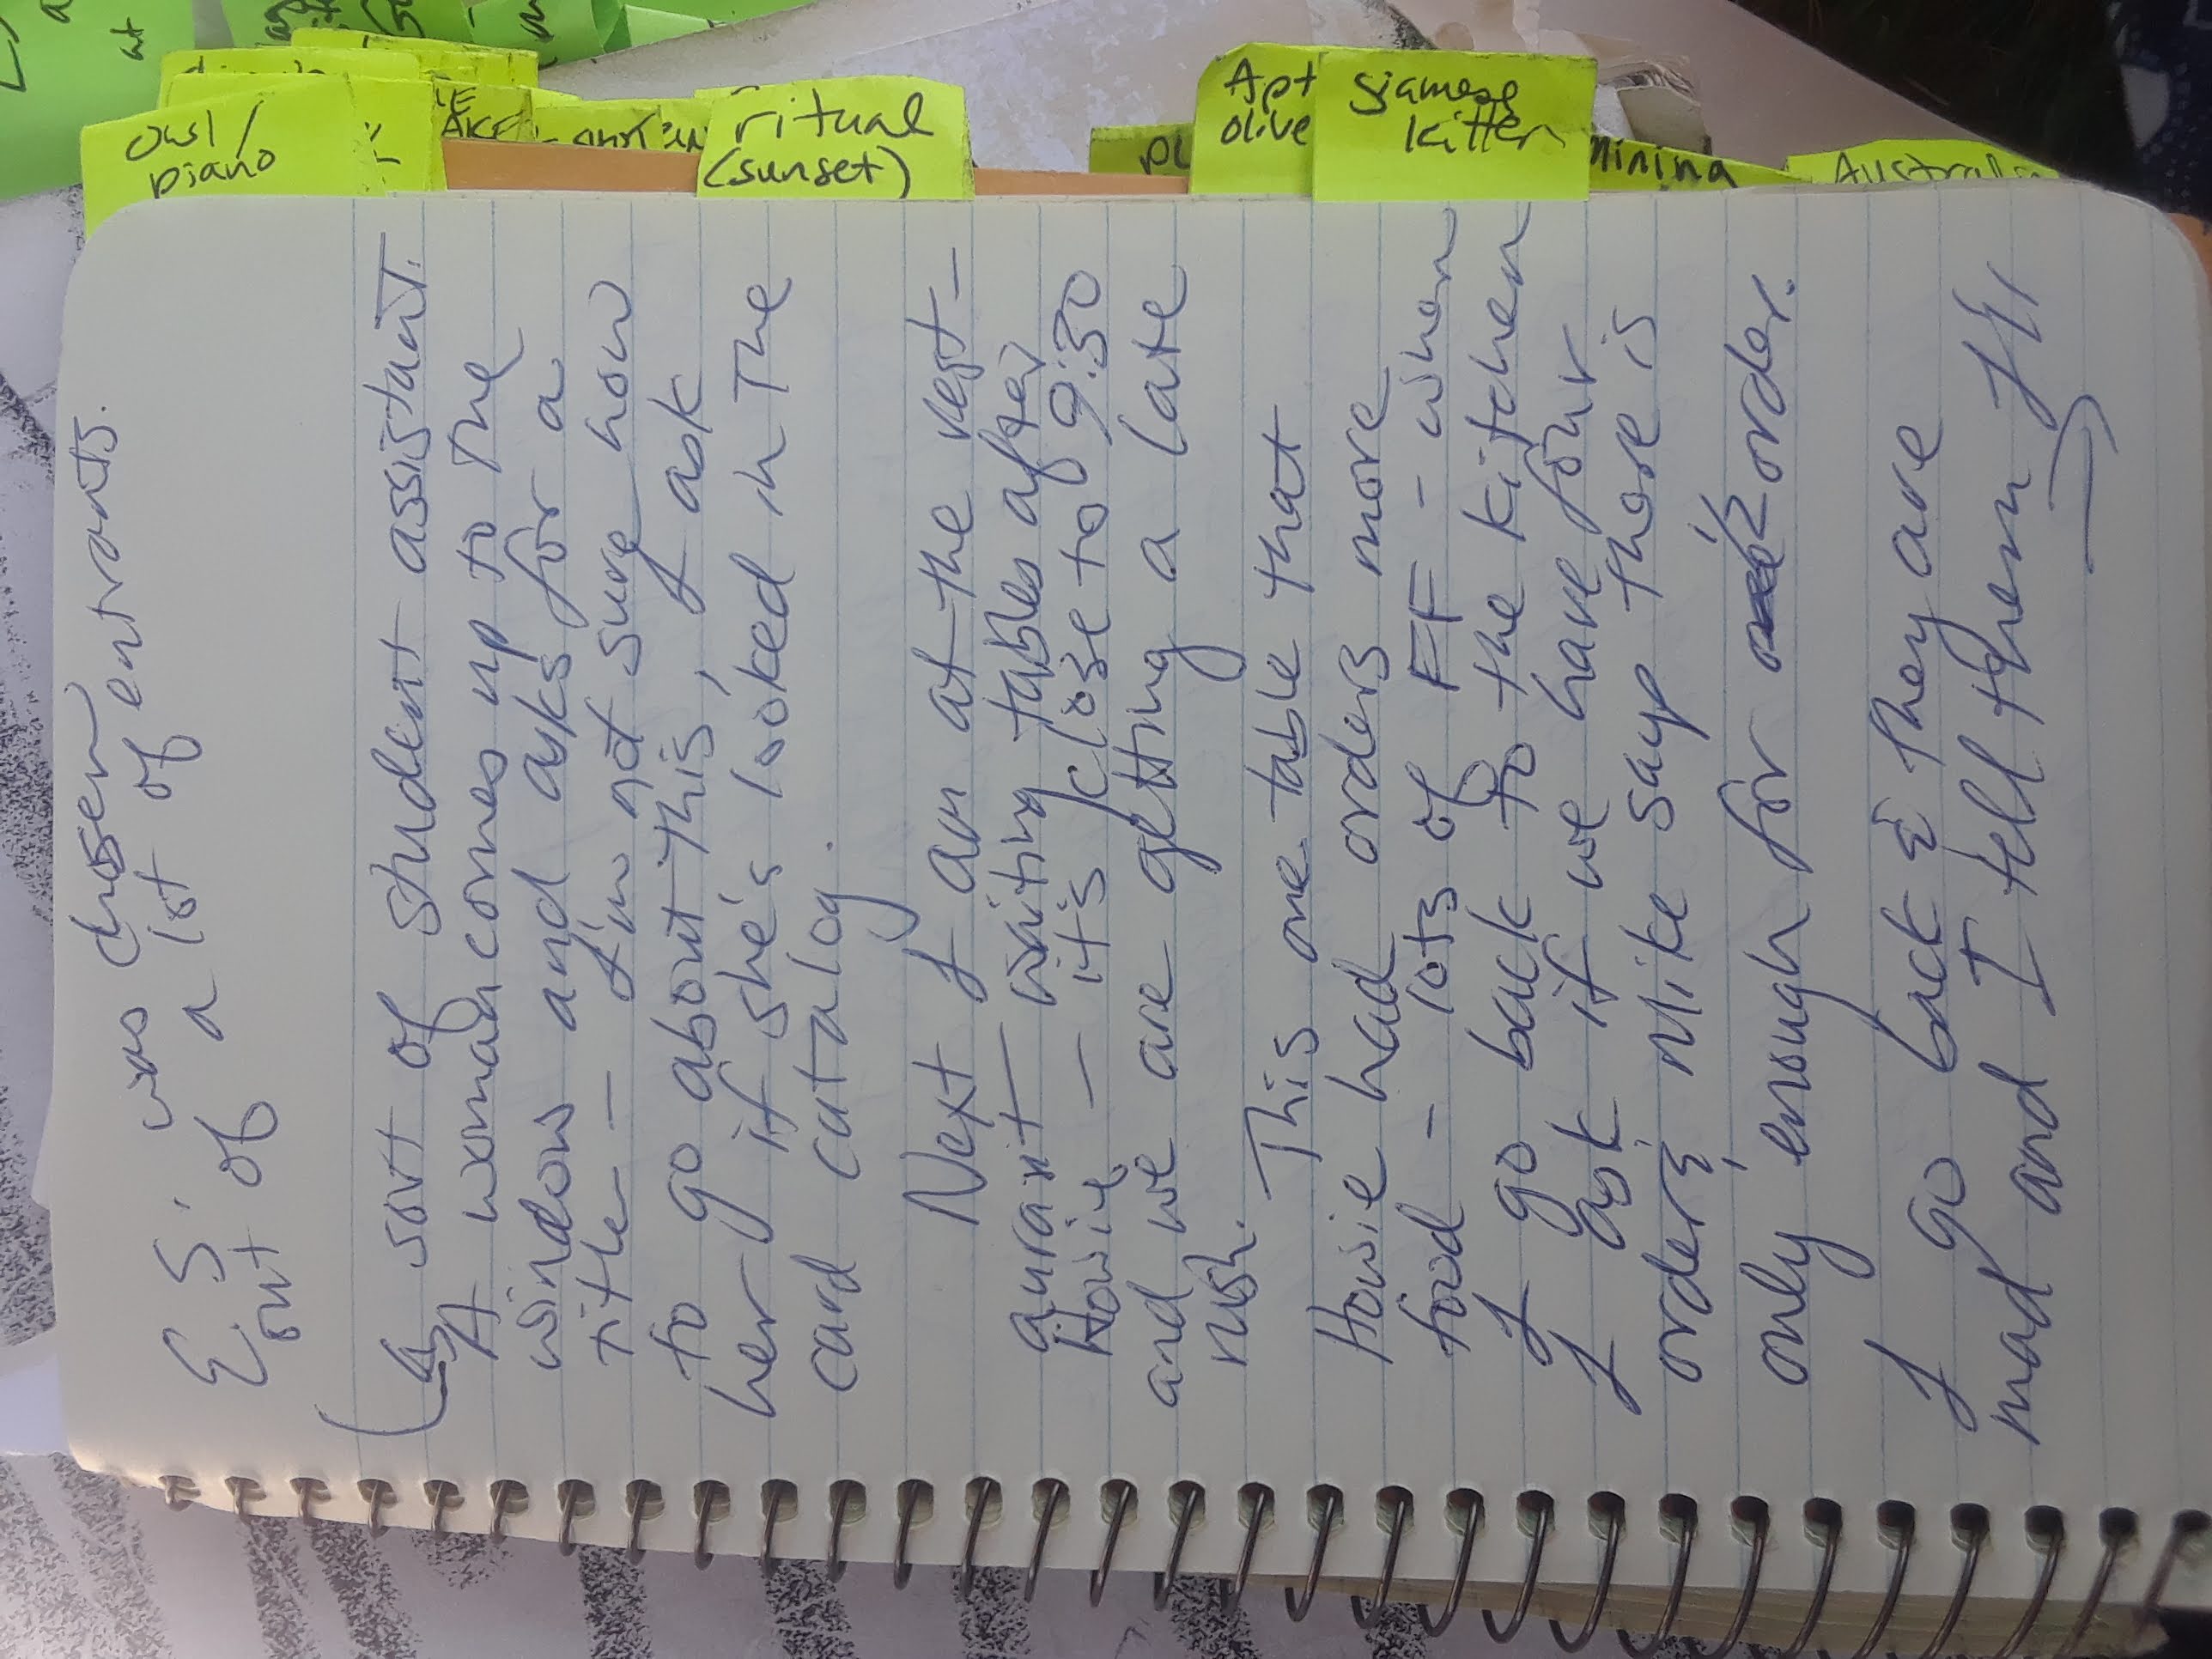 owl/
piano
ritual
(sunset)
Apt
olive
siamese
kitten
mining
Australia
at
E.S. was chosen
out of a lot of entrants.
(as sort of student assistant.
A woman comes up to the
window and asks for a
title - I'm not sure how
to go about this, I ask
her if she's looked in the
card catalog.
Next I am at the rest-
aurant waiting tables after
Howie - it's close to 9:30
and we are getting a late
rush.
This one table that
Howie had orders more
food - lots of FF - when
I go back to the kitchen
I ask if we have four
orders, Mike says there is
only enough for 1/2 order.
I go back & they are
mad and I tell them I'll